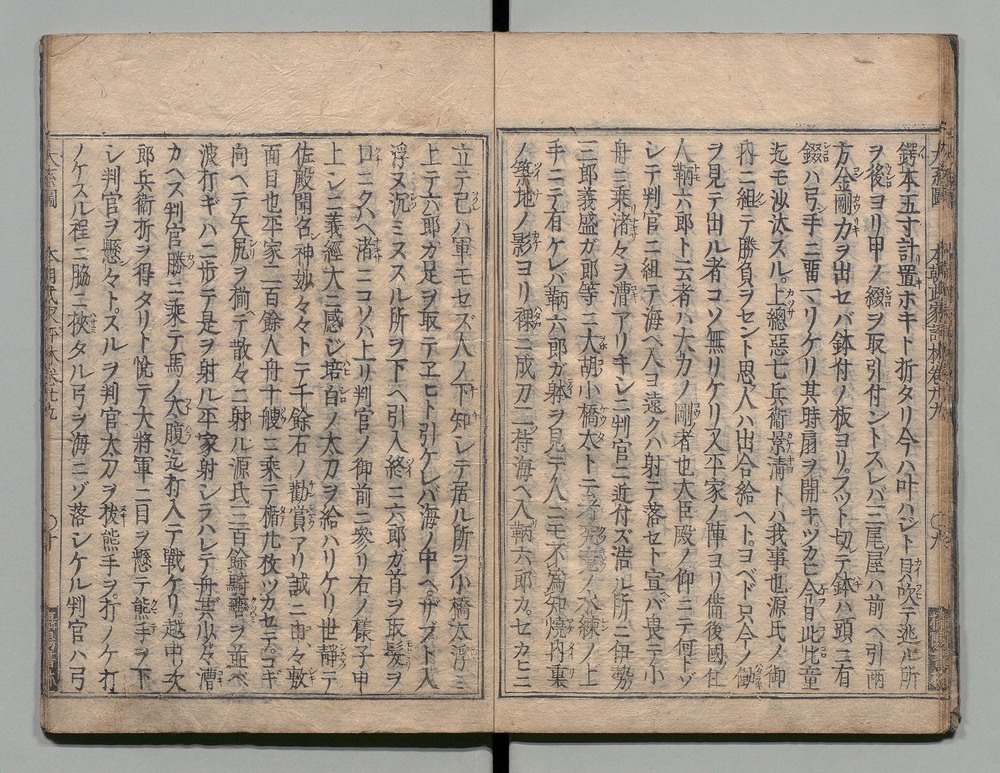 鍔本五寸計置ホキト折タリ今ハ叶ハジト貝吹テ逃ル所
ヲ後ヨリ甲ノ綴ヲ取引付ントスレバ三尾屋ハ前ヘ引両
方金剛力ヲ出セバ鉢付ノ板ヨリフツト切テ鉢ハ頭ニ有
錣ハ弓手ニ留リケリ其時扇ヲ開キツカヒ今日此比童
迄モ沙汰スル上總惡七兵衛景清トハ我事也源氏ノ御
内ニ組テ勝負ヲセント思人ハ出合給ヘトヨベド只今ノ働
ヲ見テ出ル者コソ無リケリ又平家ノ陣ヨリ備後國ノ住
人鞆六郎ト云者ハ大力ノ剛者也大臣殿ノ仰ニテ何トゾ
シテ判官ニ組テ海ヘ入ヨ遠クハ射テ落セト宣バ畏テ小
舟ニ乗渚々ヲ漕アリキシニ判官ニ近付ズ浩ル所ニ伊勢
三郎義盛ガ郎等ニ大胡小橋太トテ水練ノ上
手ニテ有ケレバ鞆六郎ガ躰ヲ見テ人ニモ不為知焼内裏
ノ築地ノ影ヨリ裸ニ成刀ニ持海ヘ入鞆六郎カセカヒニ
立テ己ハ軍モセズ人ノ下知シテ居ル所ヲ小橋太浮ミ
上テ六郎ガ足ヲ取テヱモト引ケレバ海ノ中ヘザブト入
浮ヌ沉ミヌスル所ヲ下ヘ引入終ニ六郎ガ首ヲ取髪ヲ
口ニクハヘ渚ニコソハ上リ判官ノ御前ニ参リ右ノ様子申
上シニ義經大ニ感ジ培百ノ太刀ヲ給ハリケリ世靜テ
佐殿聞召神妙々々トテ千餘石ノ勸賞アリ誠ニ由々敷
面目也平家二百餘人舟十艘ニ乗テ楯九枚ツカセテコギ
向ヘテ矢尻ヲ揃デ散々ニ射ル源氏三百餘騎轡ヲ並ベ
波打ギハニ歩テ是ヲ射ル平家射シラハレテ舟共少々漕
カヘス判官勝ニ乗テ馬ノ太腹迄打入テ戰ケリ越中次
郎兵衛折ヲ得タリト悦テ大將軍ニ目ヲ懸テ熊手ヲ下
シ判官ヲ懸々トスルヲ判官太刀ヲ抜熊手ヲ打ノケ打
ノケスル程ニ脇ニ挾タル弓ヲ海ニゾ落シケル判官ハ弓